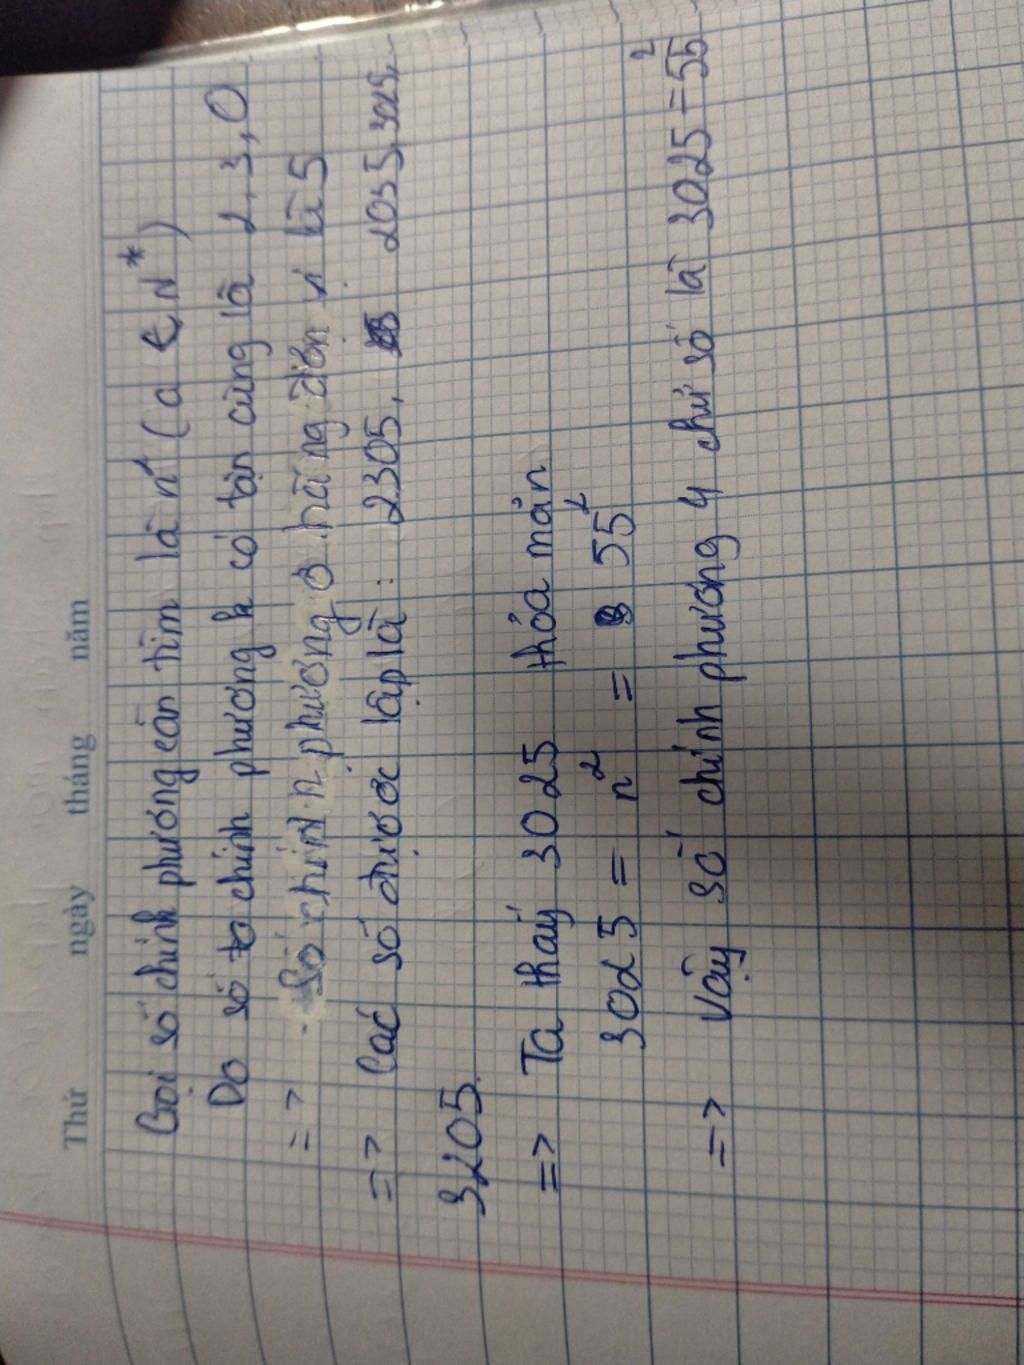 Thứ ngày tháng năm
Gọi số chính phương cần tìm là n² (a ∈ N*)
Do số chính phương k có tận cùng là 2, 3, 0
=> Số chính phương ở hàng đơn vị là 5
=> Các số được lập là: 2305, 2035, 3025,
3205.
=> Ta thấy 3025 thỏa mãn
3025 = n² = 55²
=> Vậy số chính phương 4 chữ số là 3025 = 55²